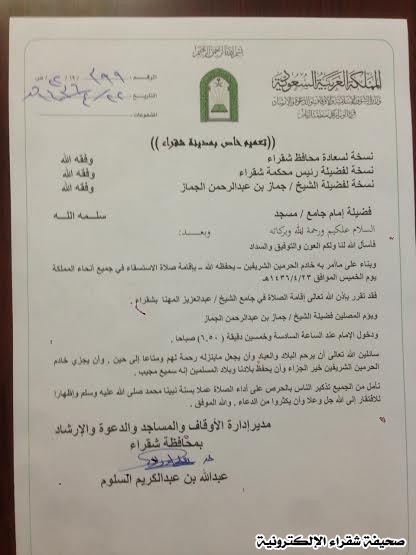 بسم الله الرحمن الرحيم
المملكة العربية السعودية
الرقم :
التاريخ :
((تعميم خاص بمدينة شقراء ))
نسخة لسعادة محافظ شقراء وفقه الله
نسخة لفضيلة رئيس محكمة شقراء وفقه الله
نسخة لفضيلة الشيخ / جماز بن عبدالرحمن الجماز وفقه الله
فضيلة إمام جامع / مسجد سلمه الله
السلام عليكم ورحمة الله وبركاته وبعد:
فأسأل الله لنا ولكم العون والتوفيق والسداد
وبناء على ماأمر به خادم الحرمين الشريفين – يحفظه الله – بإقامة صلاة الاستسقاء في جميع أنحاء المملكة
يوم الخميس الموافق ١٤٣٦/٤/٢٣هـ
فقد تقرر بإذن الله تعالى إقامة الصلاة في جامع الشيخ / عبدالعزيز المهنا بشقراء .
ويوم المصلين فضيلة الشيخ / جماز بن عبدالرحمن الجماز
ودخول الإمام عند الساعة السادسة وخمسين دقيقة (٦،٥٠) صباحا .
سائلين الله تعالى أن يرحم البلاد والعباد وأن يجعل ماينزله رحمة لهم ومتاعا إلى حين . وأن يجزي خادم
الحرمين الشريفين خير الجزاء وأن يحفظ بلادنا وبلاد المسلمين إنه سميع مجيب .
نأمل من الجميع تذكير الناس بالحرص على أداء الصلاة عملا بسنة نبينا محمد صلى الله عليه وسلم وإظهارا
للافتقار إلى الله جل وعلا وأن يكثروا من الدعاء . والله الموفق .
مدير إدارة الأوقاف والمساجد والدعوة والإرشاد
بمحافظة شقراء
عبدالله بن عبدالكريم السلوم
صحيفة شقراء الإلكترونية